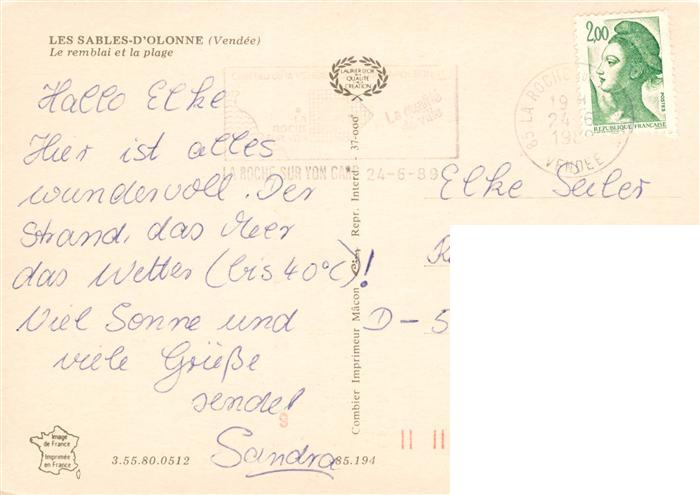 LES SABLES-D'OLONNE (Vendée)
Le remblai et la plage
LAURIER D'OR
DE LA
QUALITÉ
DE LA
CRÉATION
Hallo Elke
Hier ist alles
wundervoll. Der
Strand, das Meer
das Wetter (bis 40°C)!
Viel Sonne und
viele Grüße
sendet
Sandra
Image
de France
Imprimée
en France
3.55.80.0512
85.194
Combier Imprimeur Mâcon
Repr. Interdite - 37-000
LA ROCHE SUR YON 24-6-89
La qualité
2,00
POSTES
REPUBLIQUE FRANÇAISE
85 LA ROCHE
24-6
VENDEE
Elke Seiler
D-5